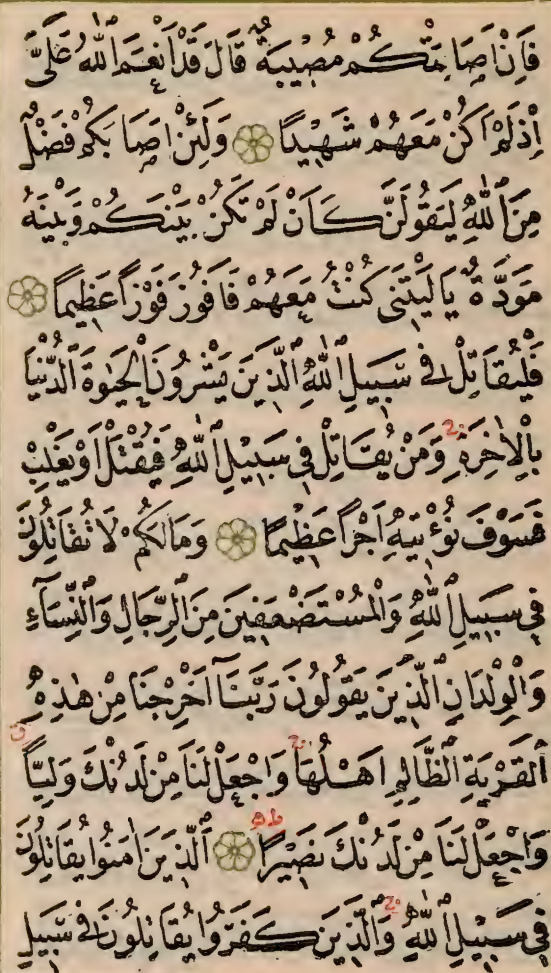 فَاِنْ اَصَابَتْكُمْ مُصِيبَةٌ قَالَ قَدْ اَنْعَمَ اللّٰهُ عَلَيَّ
اِذْ لَمْ اَكُنْ مَعَهُمْ شَهِيدًا وَلَئِنْ اَصَابَكُمْ فَضْلٌ
مِنَ اللّٰهِ لَيَقُولَنَّ كَاَنْ لَمْ تَكُنْ بَيْنَكُمْ وَبَيْنَهُ
مَوَدَّةٌ يَا لَيْتَنِي كُنْتُ مَعَهُمْ فَاَفُوزَ فَوْزًا عَظِيمًا
فَلْيُقَاتِلْ فِي سَبِيلِ اللّٰهِ الَّذِينَ يَشْرُونَ الْحَيٰوةَ الدُّنْيَا
بِالْاٰخِرَةِ وَمَنْ يُقَاتِلْ فِي سَبِيلِ اللّٰهِ فَيُقْتَلْ اَوْ يَغْلِبْ
فَسَوْفَ نُؤْتِيهِ اَجْرًا عَظِيمًا وَمَا لَكُمْ لَا تُقَاتِلُونَ
فِي سَبِيلِ اللّٰهِ وَالْمُسْتَضْعَفِينَ مِنَ الرِّجَالِ وَالنِّسَاۤءِ
وَالْوِلْدَانِ الَّذِينَ يَقُولُونَ رَبَّنَاۤ اَخْرِجْنَا مِنْ هٰذِهِ
الْقَرْيَةِ الظَّالِمِ اَهْلُهَا وَاجْعَلْ لَنَا مِنْ لَدُنْكَ وَلِيًّا
وَاجْعَلْ لَنَا مِنْ لَدُنْكَ نَصِيرًا اَلَّذِينَ اٰمَنُوا يُقَاتِلُونَ
فِي سَبِيلِ اللّٰهِ وَالَّذِينَ كَفَرُوا يُقَاتِلُونَ فِي سَبِيلِ